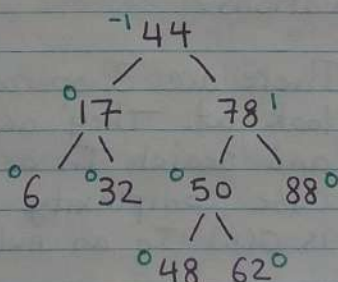 -1 44
0 17 78 1
0 6 0 32 0 50 88 0
0 48 62 0